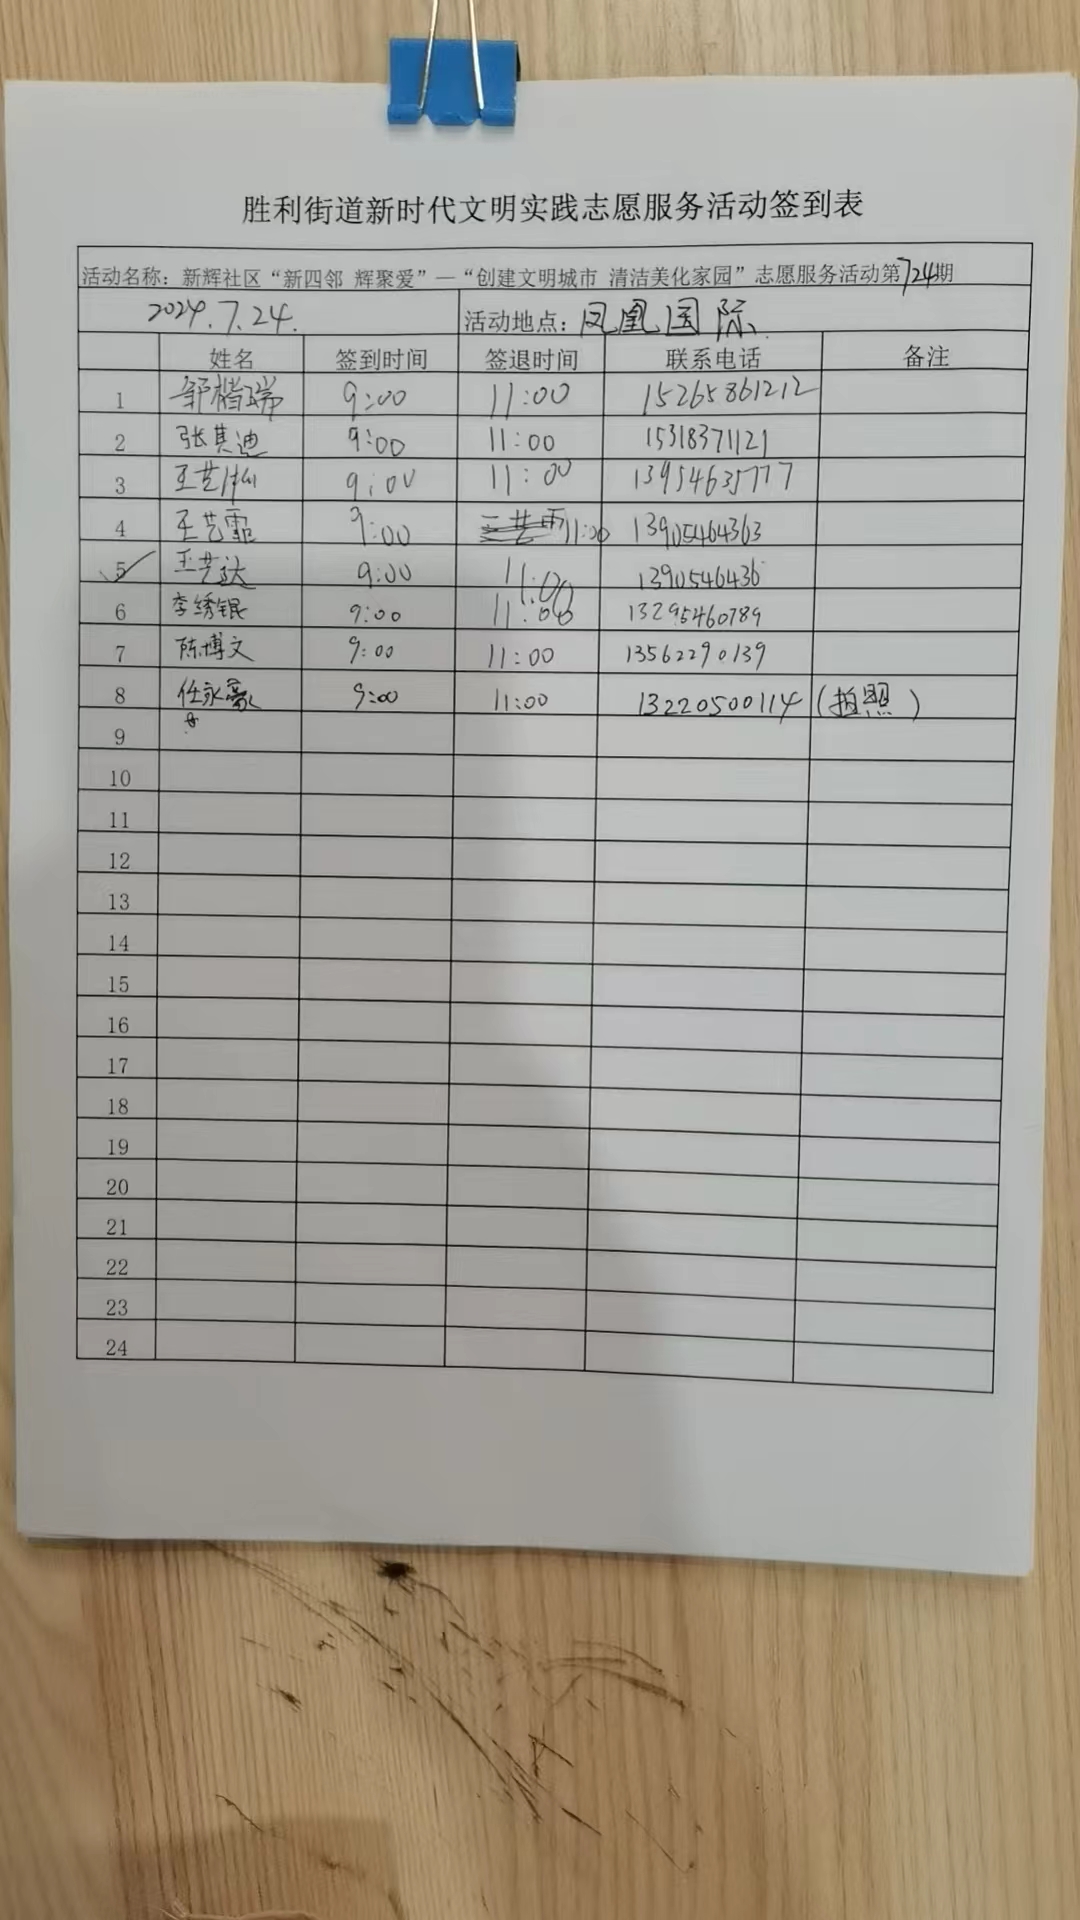 胜利街道新时代文明实践志愿服务活动签到表
活动名称：新辉社区“新四邻 辉聚爱”—“创建文明城市 清洁美化家园”志愿服务活动第724期
2024.7.24. 活动地点：凤凰国际
姓名 签到时间 签退时间 联系电话 备注
1 邹楷瑞 9:00 11:00 15265861212
2 张其迪 9:00 11:00 15318371121
3 王艺 9:00 11:00 13954635777
4 王艺霏 9:00 11:00 13905464363
5 王艺达 9:00 11:00 1390546436
6 李绣银 9:00 11:00 13295460789
7 陈博文 9:00 11:00 13562290139
8 任永豪 9:00 11:00 13220500114 (拍照)
9
10
11
12
13
14
15
16
17
18
19
20
21
22
23
24